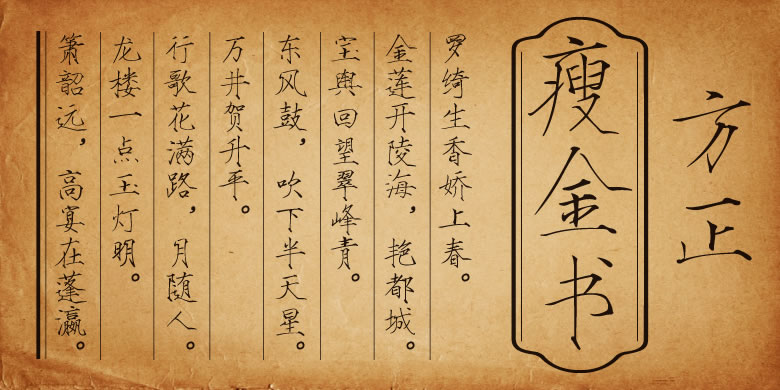 方正
瘦金书
罗绮生香娇上春。
金莲开陵海，艳都城。
宝舆回望翠峰青。
东风鼓，吹下半天星。
万井贺升平。
行歌花满路，月随人。
龙楼一点玉灯明。
箫韶远，高宴在蓬瀛。